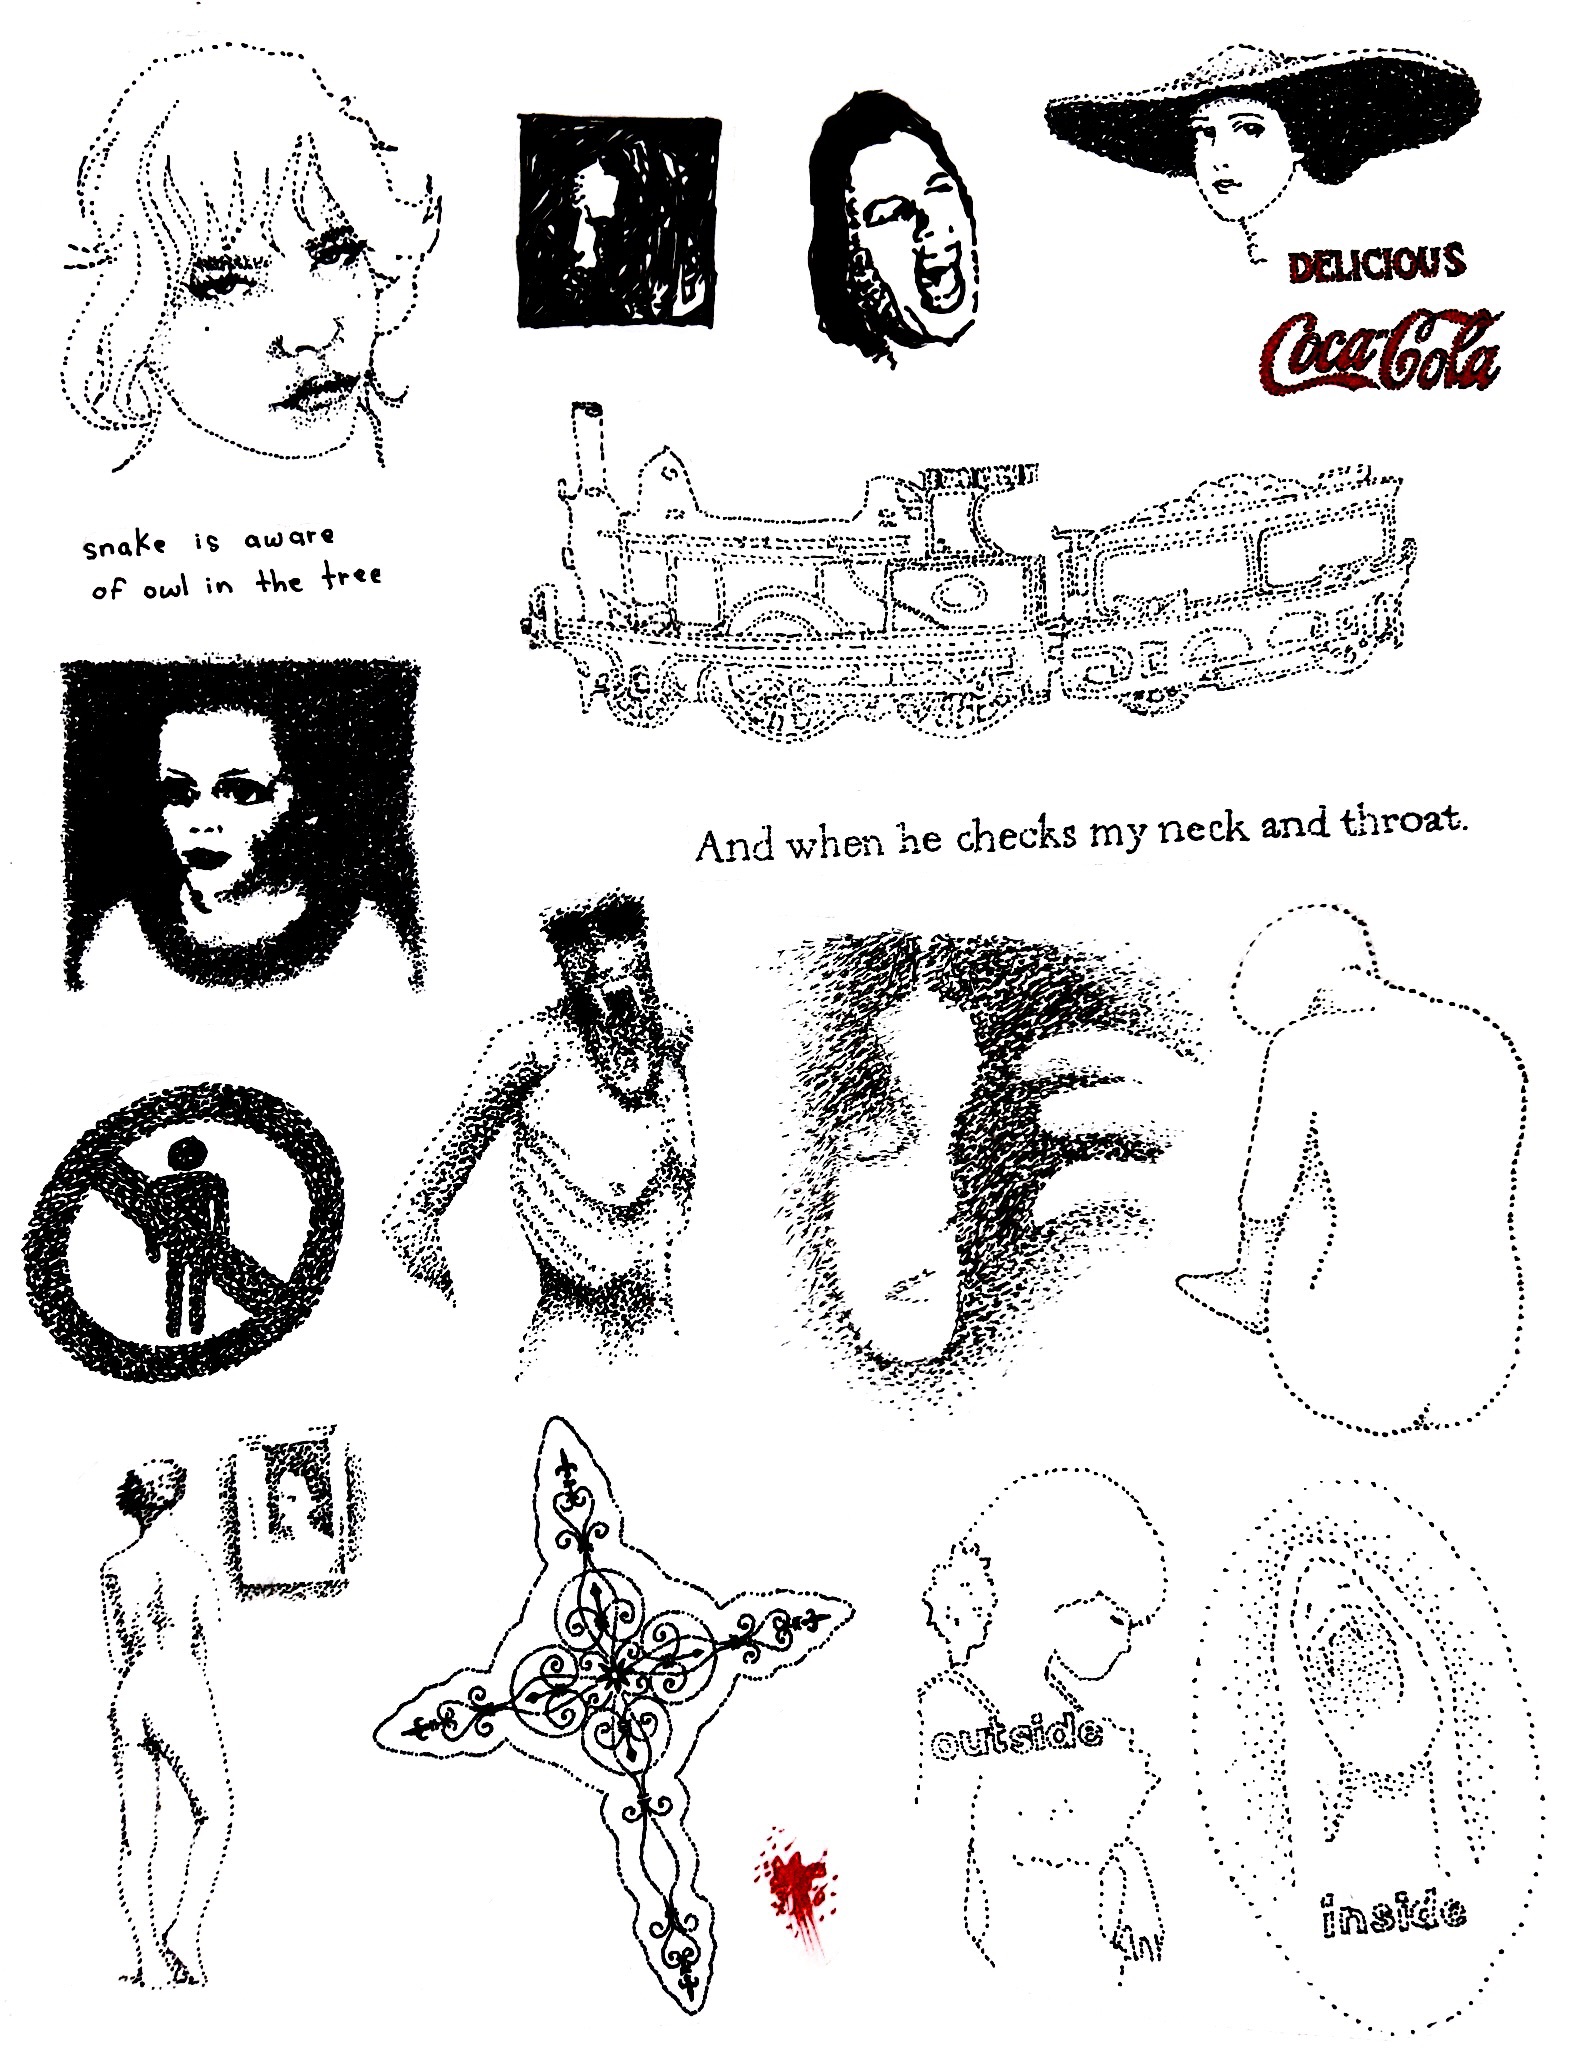 DELICIOUS
Coca-Cola
snake is aware
of owl in the tree
And when he checks my neck and throat.
outside
inside